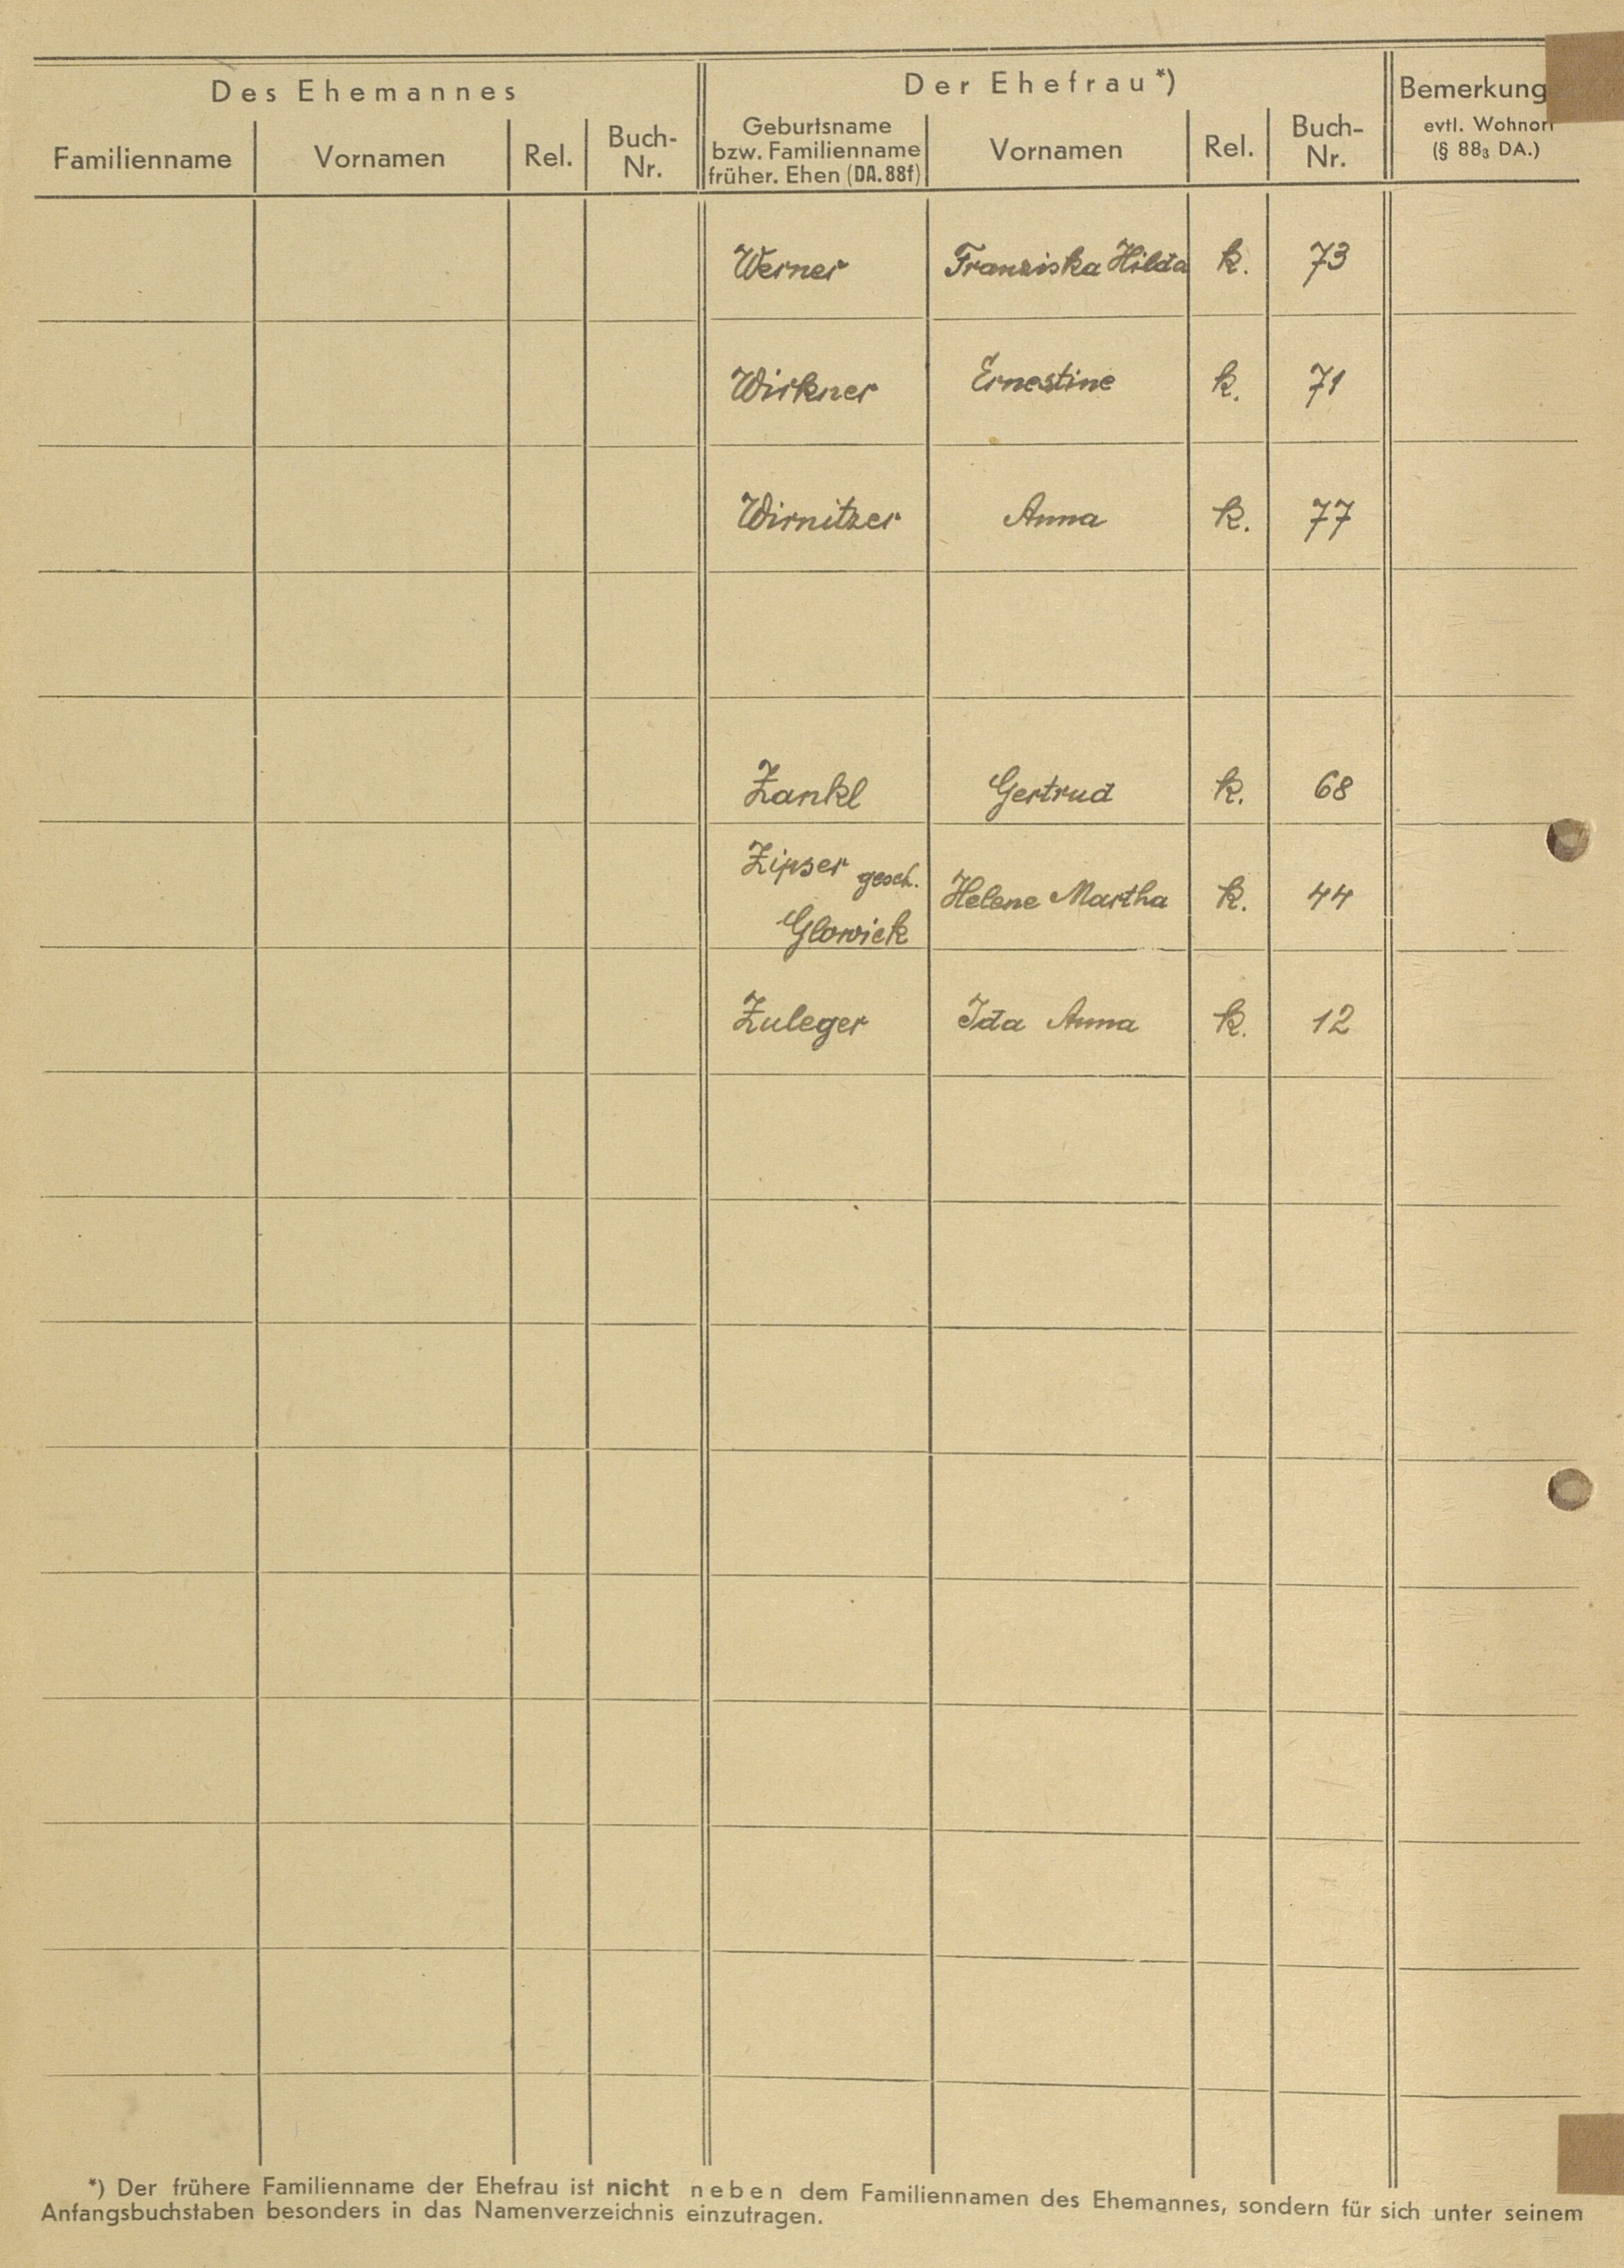 Des Ehemannes
Der Ehefrau*)
Bemerkung
evtl. Wohnort
(§ 88₃ DA.)
Familienname Vornamen Rel. Buch-
Nr.
Geburtsname
bzw. Familienname
früher. Ehen (DA. 88f)
Vornamen Rel. Buch-
Nr.
Werner Franziska Hilda k. 73
Wirkner Ernestine k. 71
Wirnitzer Anna k. 77
Zankl Gertrud k. 68
Zipser gesch.
Glowick Helene Martha k. 44
Zuleger Ida Anna k. 12
*) Der frühere Familienname der Ehefrau ist nicht neben dem Familiennamen des Ehemannes, sondern für sich unter seinem
Anfangsbuchstaben besonders in das Namenverzeichnis einzutragen.